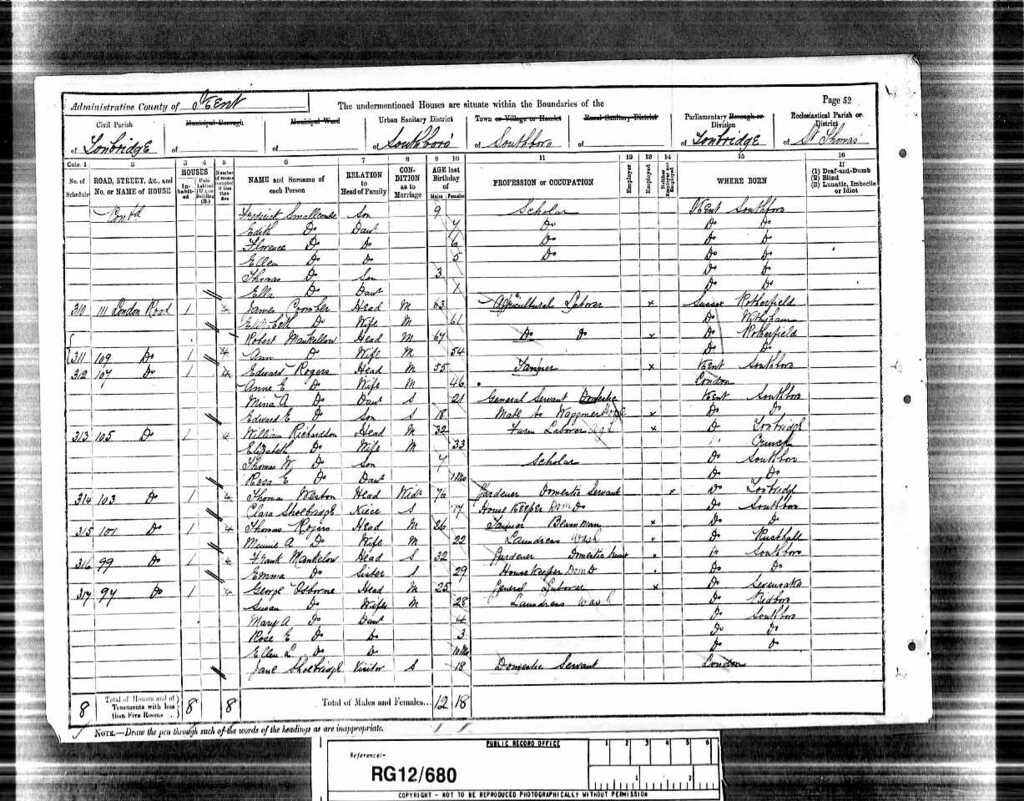 Administrative County of Kent
The undermentioned Houses are situate within the Boundaries of the
Page 52
Civil Parish Municipal Borough Municipal Ward Urban Sanitary District Town or Village or Hamlet Rural Sanitary District Parliamentary Borough or Division Ecclesiastical Parish or District
of Tonbridge of of of Southboro' of Southboro of of Tonbridge of St Thomas'
Cols. 1 2 3 4 5 6 7 8 9 10 11 12 13 14 15 16
No. of Schedule ROAD, STREET, &c., and No. or NAME of HOUSE HOUSES NAME and Surname of each Person RELATION to Head of Family CONDITION as to Marriage AGE last Birthday of Males Females PROFESSION or OCCUPATION Employer Employed WHERE BORN (1) Deaf-and-Dumb (2) Blind (3) Lunatic, Imbecile or Idiot
Contd Frederick Smallcombe Son 9 Scholar Kent Southboro
Edith Do Daur 7 Do Do Do
Florence Do Do 6 Do Do Do
Ellen Do Do 5 Do Do Do
Thomas Do Son 3 Do Do
Ella Do Daur 1 Do Do
310 111 London Road 1 4 James Head M 63 Agricultural Laborer x Sussex Rotherfield
Elizabeth Do Wife M 61 Do Withyham
Robert Mankellow Head M 67 Do Do x Do Rotherfield
311 109 Do 1 4 Ann Do Wife M 54 Do Do
312 107 Do 1 4 Edward Rogers Head M 55 x Kent Southboro
Anne E Do Wife M 46 London
Mina A Do Daur S 21 General Servant Domestic Kent Southboro
Edward E Do Son S 18 Mate to Waggoner x Do Do
313 105 Do 1 4 William Richardson Head M 32 Farm Laborer x Do Tonbridge
Elizabeth Do Wife M 33
Thomas W Do Son 7 Scholar Do Southboro
Rose E Do Daur Do Do
314 103 Do 1 4 Thomas Head Widr 76 Gardener Domestic Servant Do Tonbridge
Clara Shoebridge Niece S 17 House Keeper Dom Do Do Southboro
315 101 Do 1 4 Thomas Rogers Head M 26 x Do Do
Minnie A Do Wife M 22 Laundress Wash Do Rusthall
316 99 Do 1 4 Frank Mankelow Head S 32 Gardener Domestic Southboro
Emma Do Sister S 29 Housekeeper Dom Do Do
317 97 Do 1 4 George Osborne Head M 25 General Laborer x Do Sevenoaks
Susan Do Wife M 28 Laundress Wash Do Bidboro
Mary A Do Daur 4 Do Southboro
Rose E Do Do 3 Do Do
Ellen L Do Do 10 Mo Do Do
Jane Shoebridge Visitor S 18 Domestic Servant London
8 Total of Houses and of Tenements with less than Five Rooms 8 8 Total of Males and Females... 12 18
NOTE.—Draw the pen through such of the words of the headings as are inappropriate.
PUBLIC RECORD OFFICE
Reference:-
RG12/680
1 2 3 4 5 6
COPYRIGHT - NOT TO BE REPRODUCED PHOTOGRAPHICALLY WITHOUT PERMISSION